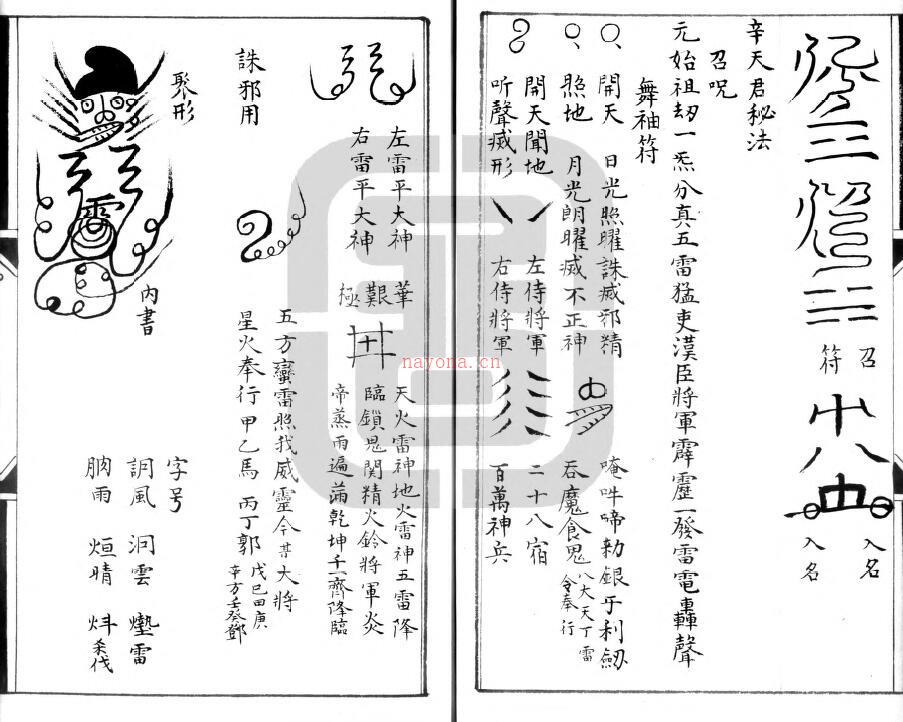 召符
入名
入名
辛天君秘法
召呪
元始祖刼一炁分真五雷猛吏漢臣將軍霹靂一發雷電轟聲
舞袖符
開天 日光照曜誅滅邪精 唵吽啼勅銀牙利劒
照地 月光朗曜滅不正神 吞魔食鬼 八大天丁雷令奉行
開天聞地 左侍將軍 二十八宿
听聲滅形 右侍將軍 百萬神兵
左雷平大神 華 天火雷神地火雷神五雷降
右雷平大神 艱 臨鎖鬼関精火鈴將軍炎
極 帝蒸雨遍滿乾坤千齊降臨
誅邪用
五方蠻雷照我威靈今某大將
星火奉行 甲乙馬 丙丁郭 戊己田庚
辛方壬癸鄧
聚形
雷
内書
字号
詷風 洞雲 雷
雨 烜晴 炓杀伐
nayona.cn